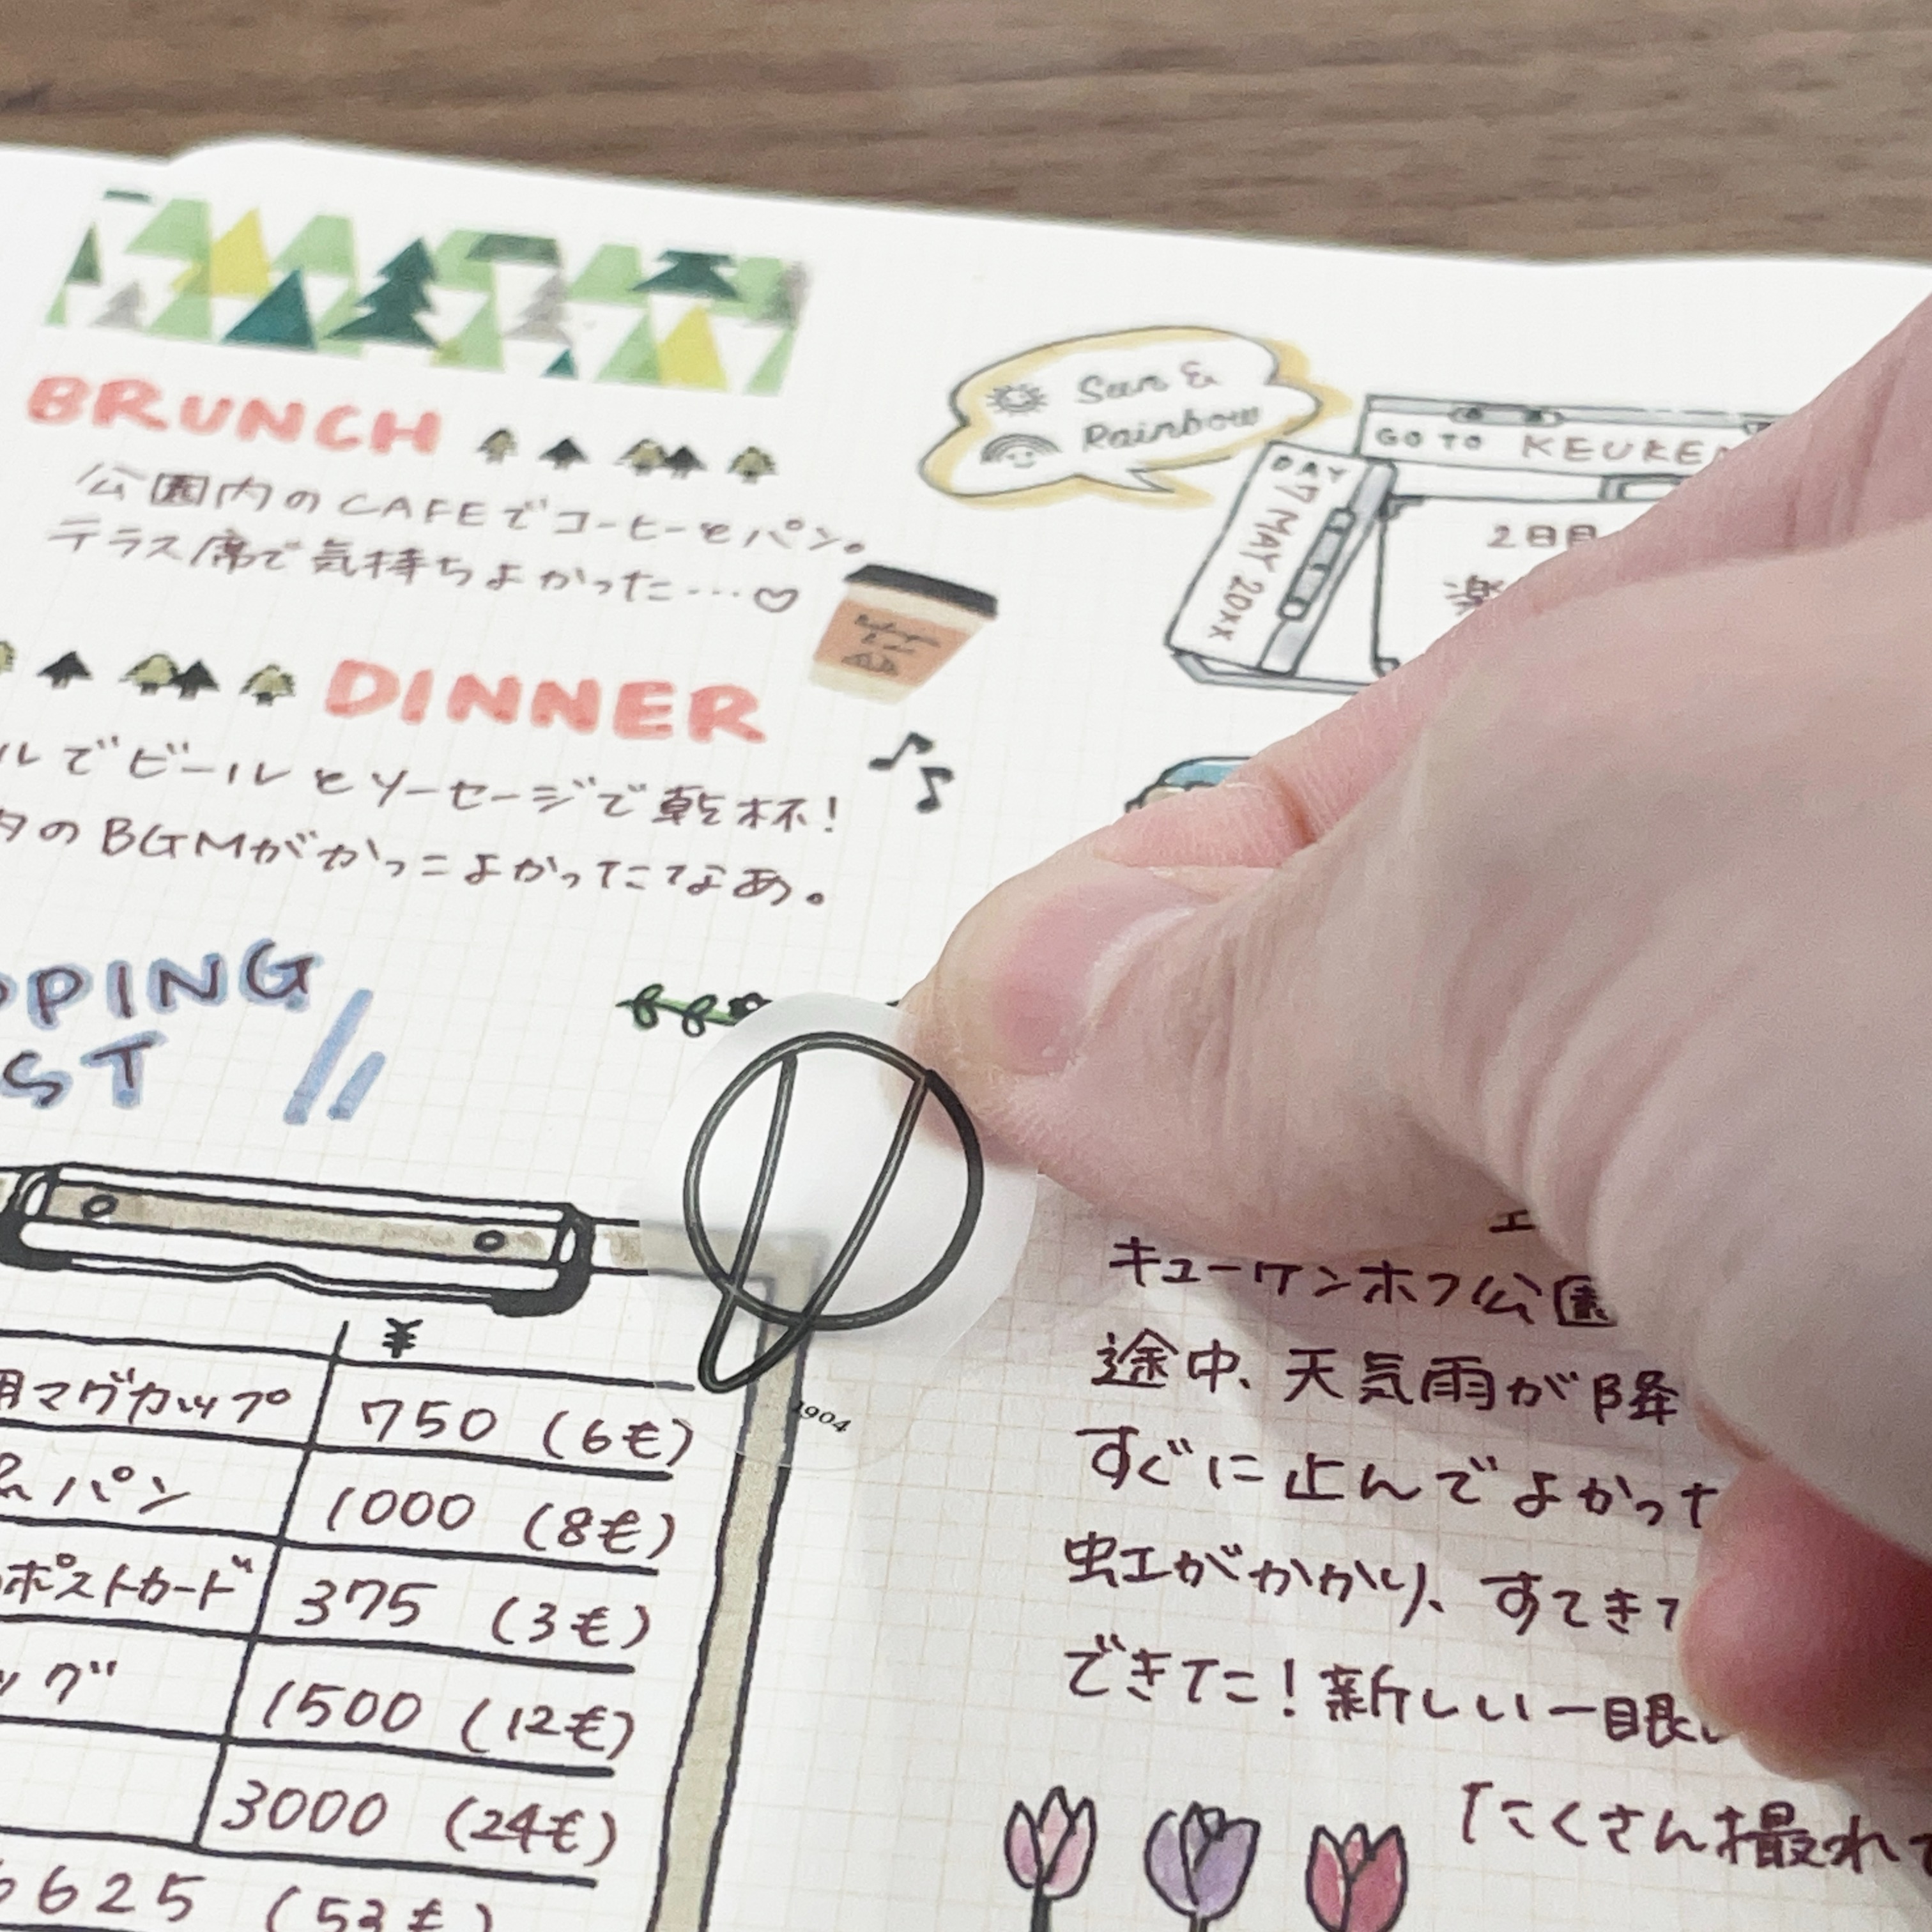 BRUNCH
公園内のCAFEでコーヒーとパン。
テラス席で気持ちよかった…♡
DINNER
ルでビールとソーセージで乾杯!
内のBGMがかっこよかったなあ。
PPING
ST
¥
用マグカップ 750 (6€)
パン 1000 (8€)
ポストカード 375 (3€)
ッグ 1500 (12€)
3000 (24€)
6625 (53€)
Sun &
Rainbow
GO TO KEUKEN
DAY
7 MAY 20XX
2日目
楽
1904
キューケンホフ公園
途中、天気雨が降
すぐに止んでよかった
虹がかかり、すてきな
できた!新しい一眼
「たくさん撮れて